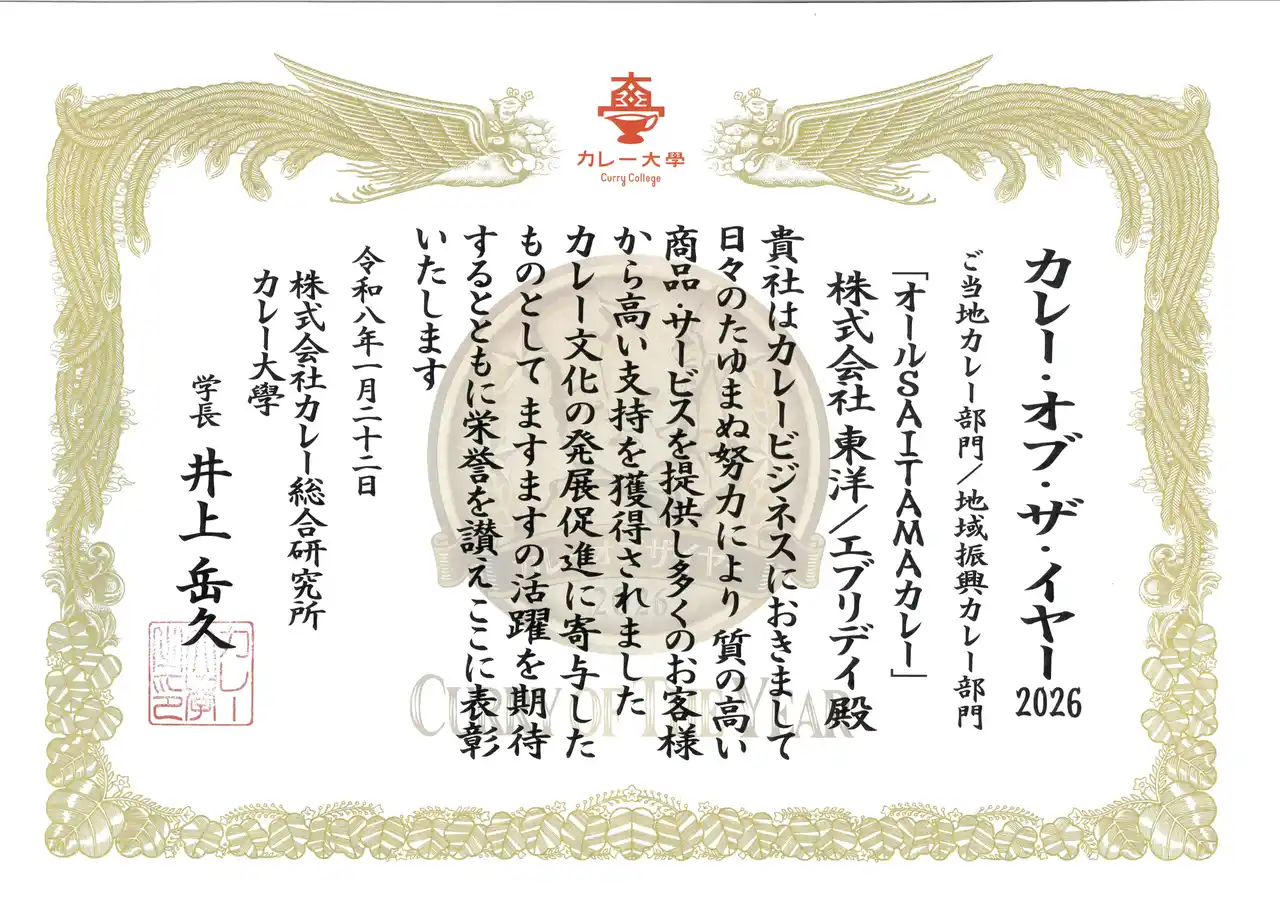 カレー大學
Curry College
カレー・オブ・ザ・イヤー2026
ご当地カレー部門／地域振興カレー部門
「オールSAITAMAカレー」
株式会社 東洋／エブリデイ殿
貴社はカレービジネスにおきまして
日々のたゆまぬ努力により 質の高い
商品・サービスを提供し多くのお客様
から高い支持を獲得されました
カレー文化の発展促進に寄与した
ものとして ますますの活躍を期待
するとともに栄誉を讃えここに表彰
いたします
令和八年一月二十二日
株式会社カレー総合研究所
カレー大學
学長 井上 岳久
カレーオブザイヤー
2026
CURRY OF THE YEAR